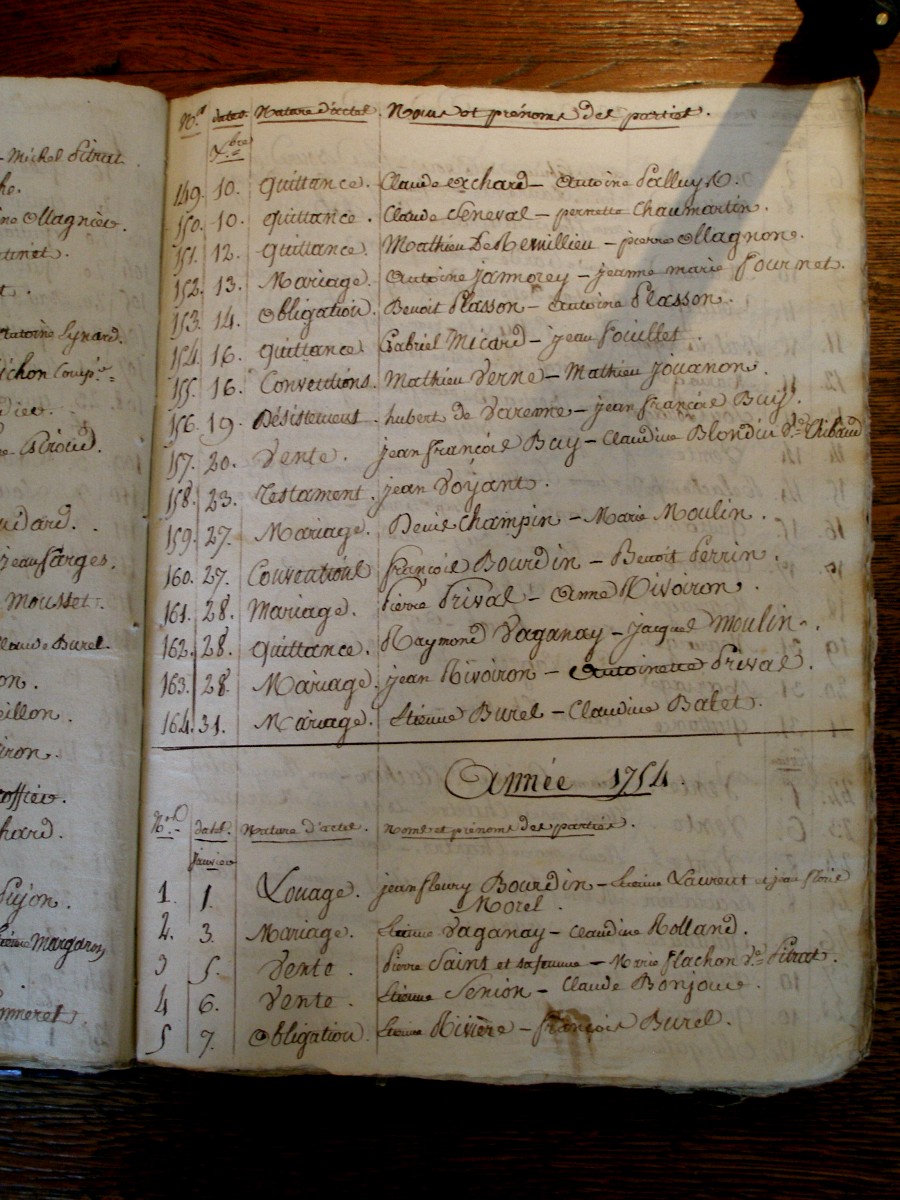 Michel Pitrat
ne Ollagnier
Antoine Lynard.
ichon Coup.e
Piroud.
uidard.
jean farges.
Mousset.
Claude Burel.
on.
illon.
iron.
hard.
Pujon.
Etienne Margaron
onneret.
N.os dates. Nature d'actes. Noms et prénoms des parties.
X.bre
149. 10. Quittance. Claude Achard – Antoine Palluy
150. 10. Quittance. Claude Seneval – pernette Chaumartin.
151. 12. Quittance. Mathieu De Remillieu – pierre Ollagnon.
152. 13. Mariage. Antoine jamorey – jeanne marie Fournet.
153. 14. Obligation. Benoit Plasson – Antoine Plasson.
154. 16. Quittance. Gabriel Micard – jean Fouillet.
155. 16. Conventions. Mathieu Verne – Mathieu jouanon.
156. 19. Désistement. hubert de Varenne – jean françois Buy.
157. 20. Vente. jean françois Buy – Claudine Blondin V.e Thibaud
158. 23. Testament. jean Voyant.
159. 27. Mariage. Denis Champin – Marie Moulin.
160. 27. Conventions françois Bourdin – Benoit Perrin.
161. 28. Mariage. Pierre Prival – Anne Rivoiron.
162. 28. Quittance. Raymond Vaganay – jacques moulin.
163. 28. Mariage. jean Rivoiron – Antoinette Prival.
164. 31. Mariage. Etienne Burel – Claudine Balet.
Année 1754.
N.os dates. Nature d'actes. Noms et prénoms des parties.
janvier
1. 1. Louage. jean fleury Bourdin – Etienne Laurent et jean
Morel.
2. 3. Mariage. Etienne Vaganay – Claudine Rolland.
3 5. Vente. Pierre Saint et sa femme – Marie flachon V.e Pitrat.
4 6. Vente. Etienne Senion – Claude Bonjour.
5 7. Obligation Etienne Rivière – françois Burel.